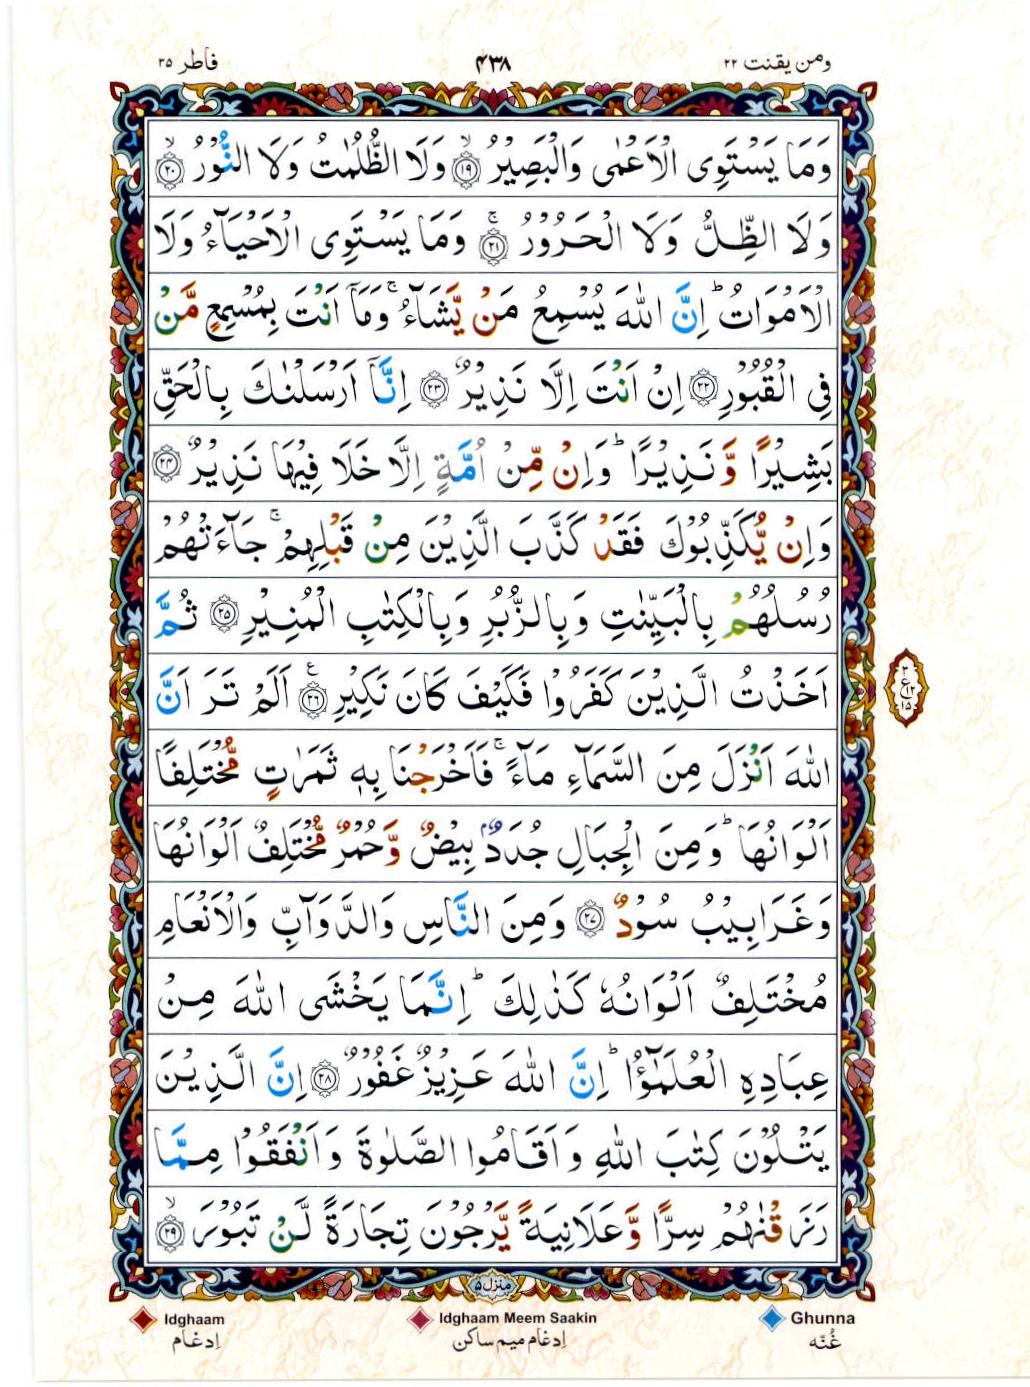 ومن يقنت ٢٢ ۴۳۸ فاطر ۳۵
وَمَا يَسْتَوِى الْاَعْمٰى وَالْبَصِيْرُ ۙ‏﴿۱۹﴾ وَلَا الظُّلُمٰتُ وَلَا النُّوْرُ ۙ‏﴿۲۰﴾
وَلَا الظِّلُّ وَلَا الْحَـرُوْرُ ۚ‏﴿۲۱﴾ وَمَا يَسْتَوِى الْاَحْيَآءُ وَلَا
الْاَمْوَاتُ ؕ اِنَّ اللّٰهَ يُسْمِعُ مَنْ يَّشَآءُ ۚ وَمَاۤ اَنْتَ بِمُسْمِعٍ مَّنْ
فِى الْقُبُوْرِ ﴿۲۲﴾ اِنْ اَنْتَ اِلَّا نَذِيْرٌ ﴿۲۳﴾ اِنَّاۤ اَرْسَلْنٰكَ بِالْحَقِّ
بَشِيْرًا وَّنَذِيْرًا ؕ وَاِنْ مِّنْ اُمَّةٍ اِلَّا خَلَا فِيْهَا نَذِيْرٌ ﴿۲۴﴾
وَاِنْ يُّكَذِّبُوْكَ فَقَدْ كَذَّبَ الَّذِيْنَ مِنْ قَبْلِهِمْ ۚ جَآءَتْهُمْ
رُسُلُهُمْ بِالْبَيِّنٰتِ وَبِالزُّبُرِ وَبِالْكِتٰبِ الْمُنِيْرِ ﴿۲۵﴾ ثُمَّ
اَخَذْتُ الَّذِيْنَ كَفَرُوْا فَكَيْفَ كَانَ نَكِيْرِ ﴿۲۶﴾ ع اَلَمْ تَرَ اَنَّ
اللّٰهَ اَنْزَلَ مِنَ السَّمَآءِ مَآءً ۚ فَاَخْرَجْنَا بِهٖ ثَمَرٰتٍ مُّخْتَلِفًا
اَلْوَانُهَا ؕ وَمِنَ الْجِبَالِ جُدَدٌۢ بِيْضٌ وَّحُمْرٌ مُّخْتَلِفٌ اَلْوَانُهَا
وَغَرَابِيْبُ سُوْدٌ ﴿۲۷﴾ وَمِنَ النَّاسِ وَالدَّوَآبِّ وَالْاَنْعَامِ
مُخْتَلِفٌ اَلْوَانُهٗ كَذٰلِكَ ؕ اِنَّمَا يَخْشَى اللّٰهَ مِنْ
عِبَادِهِ الْعُلَمٰٓؤُا ؕ اِنَّ اللّٰهَ عَزِيْزٌ غَفُوْرٌ ﴿۲۸﴾ اِنَّ الَّذِيْنَ
يَتْلُوْنَ كِتٰبَ اللّٰهِ وَاَقَامُوا الصَّلٰوةَ وَاَنْفَقُوْا مِمَّا
رَزَقْنٰهُمْ سِرًّا وَّعَلَانِيَةً يَّرْجُوْنَ تِجَارَةً لَّنْ تَبُوْرَ ۙ‏﴿۲۹﴾
منزل ۵
Idghaam Idghaam Meem Saakin Ghunna
اِدغام اِدغام میم ساکن غُنّه